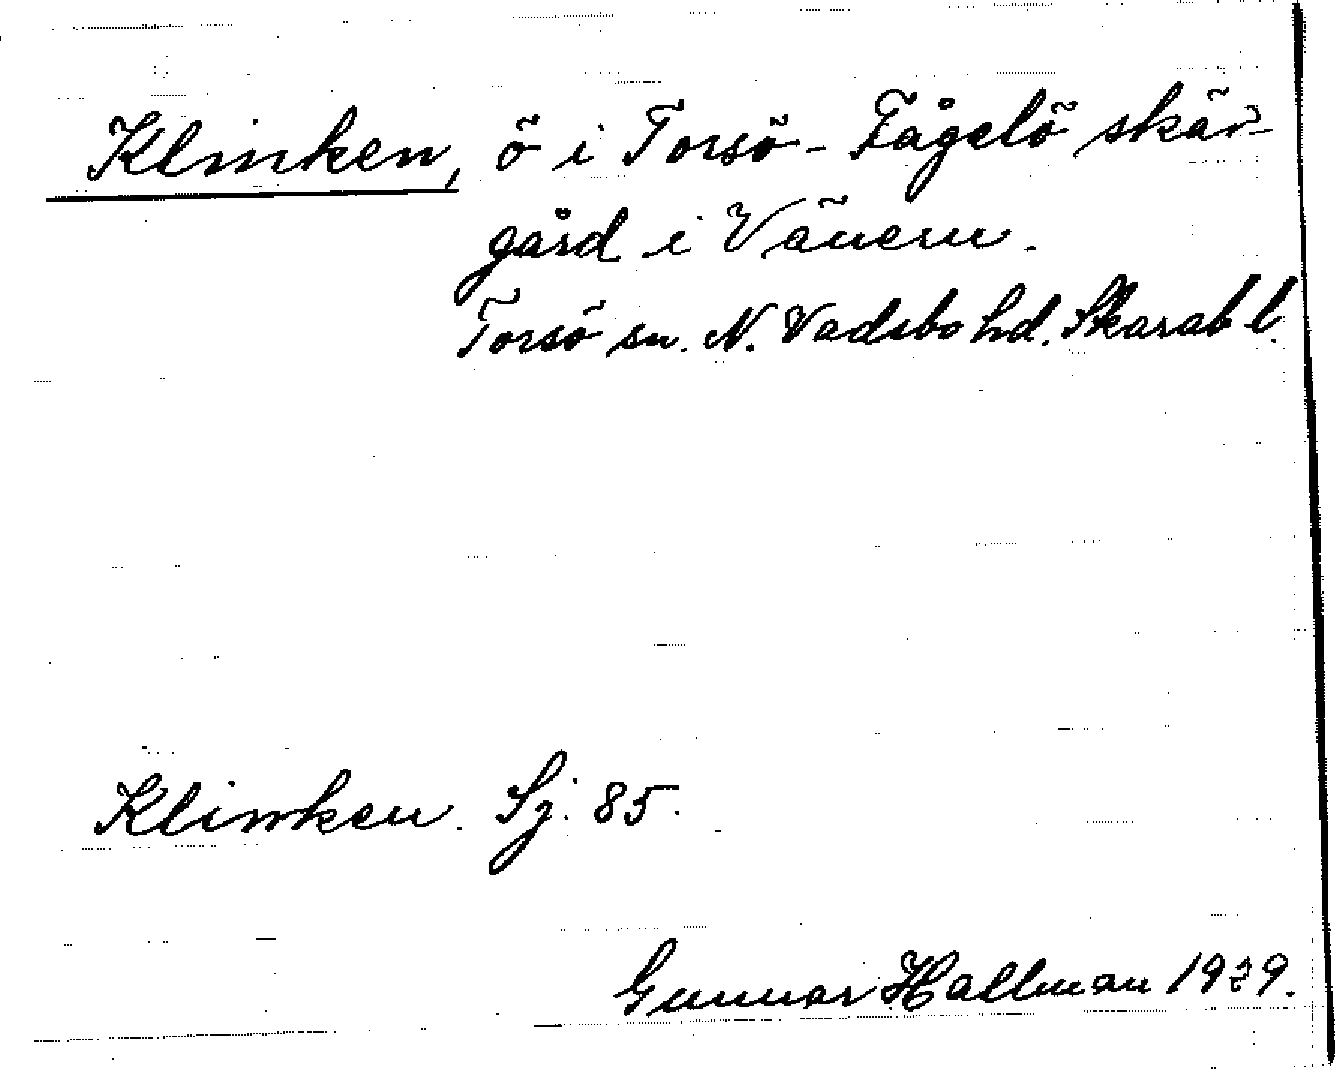 Klinken, ö i Torsö - Fågelö skär-
gård i Vänern.
Torsö sn. N. Vadsbo hd. Skarab. l.
Klinken. Sj. 85.
Gunnar Hallman 1939.